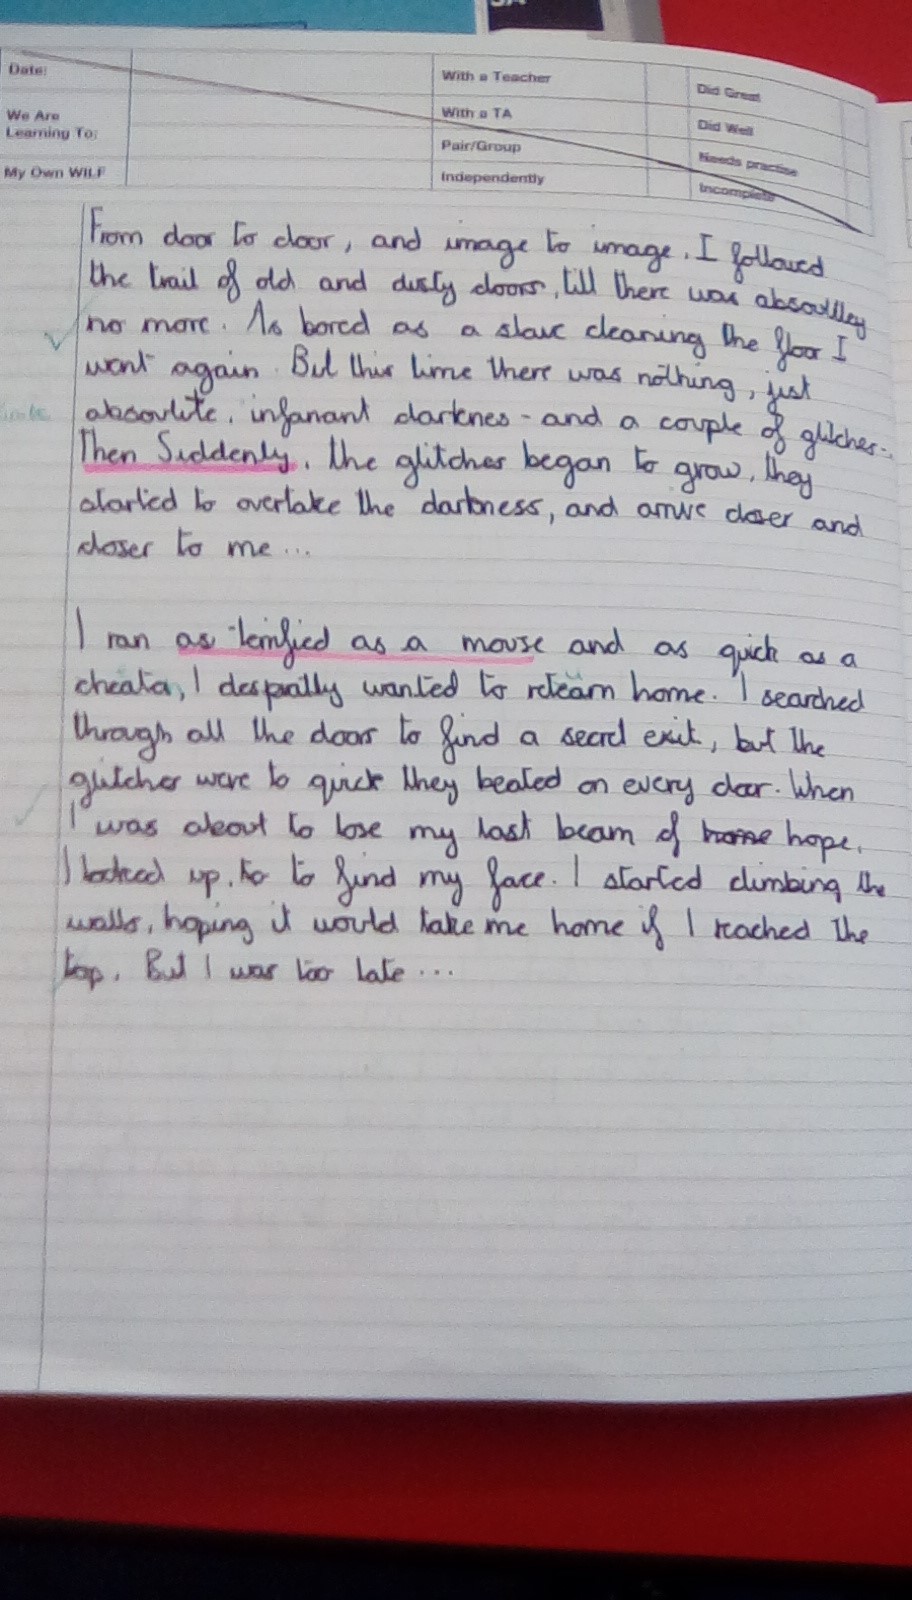 Date:
We Are
Learning To:
My Own WILF
With a Teacher
With a TA
Pair/Group
Independently
Did Great
Did Well
Needs practise
Incomplete
From door to door, and image to image, I followed
the trail of old and dusty doors, till there was absoulley
no more. As bored as a slave cleaning the floor I
went again. But this time there was nothing, just
absoulite, infanant darknes - and a couple of glitches..
Then Suddenly, the glitches began to grow, they
started to overtake the darkness, and arrive closer and
closer to me ...
I ran as terrified as a mouse and as quick as a
cheata, I desprally wanted to retearn home. I searched
through all the doors to find a secret exit, but the
glitches were to quick they beated on every door. When
I was about to lose my last beam of home hope,
I looked up, to to find my face. I started climbing the
walls, hoping it would take me home if I reached the
top. But I was too late ...